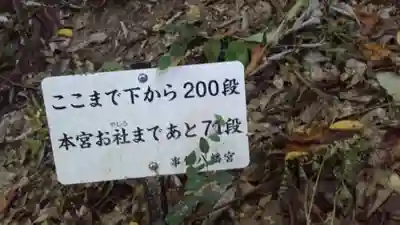 ここまで下から200段
やしろ
本宮お社まであと71段
八幡宮